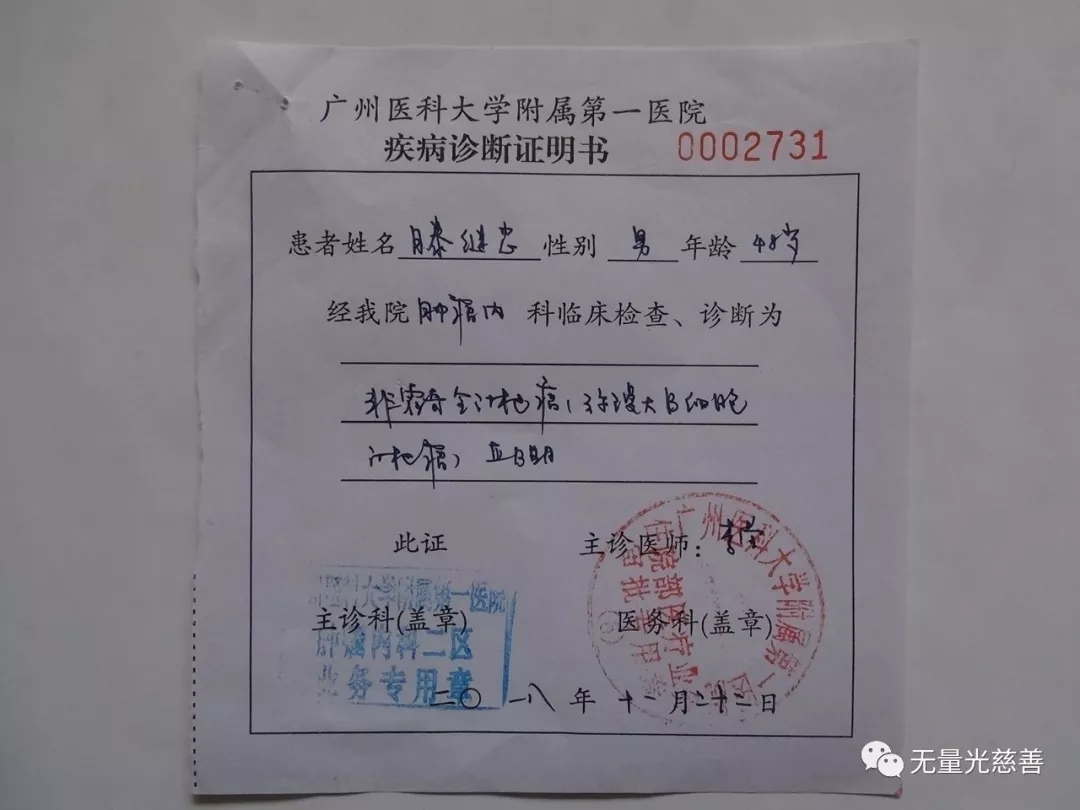 广州医科大学附属第一医院
疾病诊断证明书 0002731
患者姓名 滕继忠 性别 男 年龄 48岁
经我院 肿瘤内 科临床检查、诊断为
非霍奇金淋巴瘤,弥漫大B细胞
淋巴瘤,
此证 主诊医师:
广州医科大学附属第一医院
主诊科(盖章) 医务科(盖章)
肿瘤内科二区
业务专用章
二〇一八年 十一月二十二日
广州医科大学附属第一医院
住院部医疗业
无量光慈善